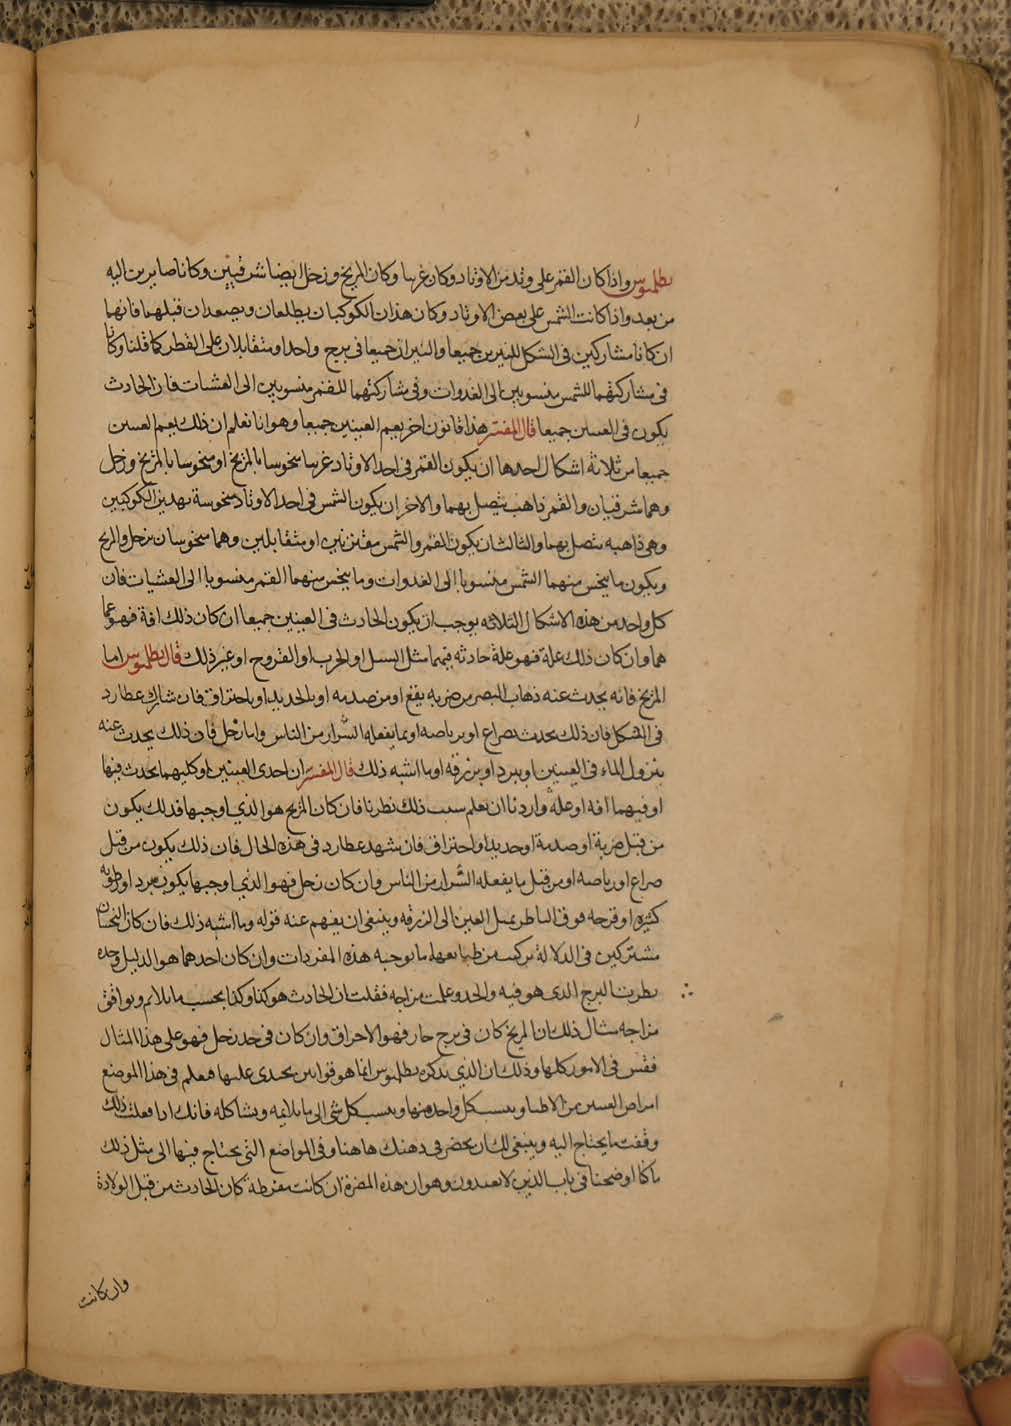 بطلميوس واذا كان القمر على وتد من الاوتاد وكان غربيا وكان المريخ وزحل ايضا شرقيين وكانا صايرين اليه
من بعد واذا كانت الشمس على بعض الاوتاد وكان هذان الكوكبان يطلعان ويصعدان قبلهما فانهما
ان كانا مشاركين في الشكل للنيرين جميعا والنيران جميعا في برج واحد او متقابلان على القطر كما قلنا وكانا
في مشاركتهما للشمس منسوبين الى الغدوات وفي مشاركتهما للقمر منسوبين الى العشيات فان الحادث
يكون في العينين جميعا قال المفسر هذا قانون اخر يعم العينين جميعا وهو انا نعلم ان ذلك يعم العينين
جميعا من ثلاثة اشكال احدها ان يكون القمر في احد الاوتاد غربيا منحوسا بالمريخ او منحوسا بالمريخ وزحل
وهما شرقيان والقمر ذاهب يتصل بهما والاخر ان يكون الشمس في احد الاوتاد منحوسة بهذين الكوكبين
وهي ذاهبه تتصل بهما والثالث ان يكون القمر والشمس مقترنين او متقابلين وهما منحوسان بزحل والمريخ
ويكون ما ينحس منهما الشمس منسوبا الى الغدوات وما ينحس منهما القمر منسوبا الى العشيات فان
كل واحد من هذه الاشكال الثلاثه يوجب ان يكون الحادث في العينين جميعا ان كان ذلك افة فهو عما
هما وان كان ذلك علة فهو علة حادثه فيهما مثل السبل او الجرب او القروح او غير ذلك قال بطلميوس اما
المريخ فانه يحدث عنه ذهاب البصر من ضربه يقع او من صدمه او بالحديد او باحتراق فان شارك عطارد
في الشكل فان ذلك يحدث بصراع او برياضه او بما يفعله الشرار من الناس واما زحل فان ذلك يحدث عنه
بنزول الماء في العينين او ببرد او بزرقه او ما اشبه ذلك قال المفسر ان احدى العينين او كليهما يحدث فيها
او فيهما افه او علة واردنا ان نعلم سبب ذلك نظرنا فان كان المريخ هو الذي اوجبها فذلك يكون
من قبل ضربة او صدمة او حديد او احتراق فان شهد عطارد في هذه الحال فان ذلك يكون من قبل
صراع او رياضه او من قبل ما يفعله الشرار من الناس وان كان زحل فهو الذي اوجبها يكون ببرد او رطوبه
كثيره او قرحه فوق الناظر يميل العين الى الزرقه وينبغي ان يفهم عنه قوله وما اشبه ذلك فان كان النحسان
مشتركين في الدلالة تركب من طبايعهما ما توجبه هذه المفردات وان كان احدهما هو الدليل وحده
نظرت البرج الذي هو فيه والحد وعلمت مزاجه فقلت ان الحادث هو كذا وكذا بحسب ما يلايم ويوافق
مزاجه مثال ذلك ان المريخ كان في برج حار فهو الاحراق وان كان في حد زحل فهو على هذا المثال
فقس في الامور كلها وذلك ان الذي يذكره بطلميوس انما هو قوانين يحتذى عليها فعلم في هذا الموضع
امراض العينين من الاطبا وينسب كل واحد منها وينسب كل شي الى ما يلايمه ويشاكله فانك اذا فعلت ذلك
وقفت ما يحتاج اليه وينبغي لك ان يحضر في ذهنك هاهنا وفي المواضع التي يحتاج فيها الى مثل ذلك
ما كنا اوضحنا في باب الذين لا يعتدون وهو ان هذه المضرة ان كانت مفرطة كان الحادث من قبل الولادة
وان كانت